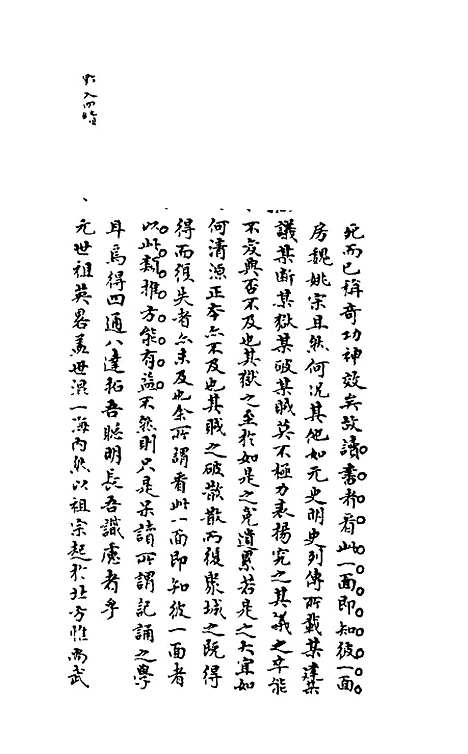 死而已稱奇功神效矣故讀書者看此一面即知彼一面
房魏姚宋且然何況其他如元史明史列傳所載某建某
議某斷某獄某破某賊莫不極力表揚究之其議之卒能
不廢與否不及也其獄之至於如是之冤遺累若是之大宜如
何清源正本亦不及也其賊之破散散而復聚城之既得
得而復失者亦未及也余所謂看此一面即知彼一面者
以此類推方能有益不然則只是呆讀所謂記誦之學
耳烏得四通八達拓吾聰明長吾識慮者乎
元世祖英畧蓋世混一海內然以祖宗起於北方惟尚武